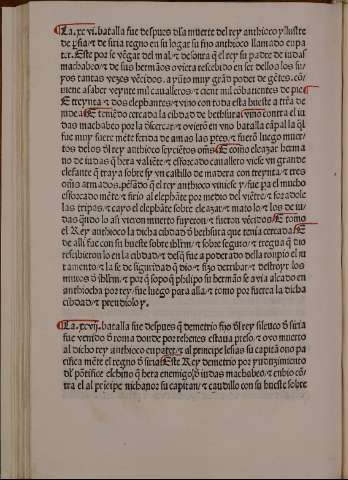 La .xcvi. batalla fue despues dl̃a muerte del rey anthioco yllustre
de ꝑsia ⁊ de siria regno en su logar su fijo anthioco llamado eupa
tor. Este por se vẽgar del mal ⁊ desonrra q̃ el rey su padre de iudas
machabeo ⁊ de sus hermãos auia rescebido en ser dellos los su
yos tantas vezes vẽcidos. ayũto muy grãd poder de gẽtes. cõ
uiene a saber veynte mil caualleros ⁊ cient mil cõbatientes de pie
E treynta ⁊ dos elephantes ⁊ vino con toda esta hueste a tr̃ra de
iudea E teniẽdo cercada la cibdad de bethsura vino contra el iu
das machabeo por la dẽscercar ⁊ ouierõ en vno batalla cãpal la q̃l
fue muy fuerte mẽte ferida de amas las ptes ⁊ fuerõ luego muer
tos delos dl̃ rey anthioco seyciẽtos om̃s E como eleazar herma
no de iudas q̃ hera valiẽte ⁊ esforcado cauallero viese vn grande
elefante q̃ traya sobre sy vn castillo de madera con treynta ⁊ tres
om̃s armados. pẽsãdo q̃ el rey anthioco viniese y fue ꝑa el mucho
esforcado mẽte ⁊ firio al elephãte por medio del viẽtre ⁊ foradole
las tripas ⁊ cayo el elephãte sobre eleazar ⁊ mato lo ⁊ los de iu
das q̃ndo lo asi vieron muerto fuyeron ⁊ fueron vẽcidos E tomo
el Rey anthioco la dicha cibdad d̃ bethsura que tenia cercada E
de alli fue con su hueste sobre ihrl̃m ⁊ sobre seguro ⁊ tregua q̃ dio
rescibieron lo en la cibdad ⁊ desq̃ fue apoderado della ronpio el iu
ramento ⁊ la fe de siguridad q̃ dio ⁊ fizo derribar ⁊ destroyr los
muros d̃ ihrl̃m ⁊ por q̃ sopo q̃ philipo su hermão se auia alcado en
anthiocha por rey fue luego para alla ⁊ tomo por fuerca la dicha
cibdad ⁊ prendiolo y.
La .xcvij. batalla fue despues q̃ demetrio fijo dl̃ rey sileuco d̃ siria
fue venido d̃ roma donde por rehenes estaua preso ⁊ ouo muerto
al dicho rey anthioco eupater ⁊ al principe lesias su capitã ono pa
cifica mẽte el regno d̃ siria Este Rey demetrio por ynduzimiento
dl̃ põtifice elchino q̃ hera enemigo d̃ iudas machabeo ⁊ enbio cõ
tra el al prĩcipe nichanor su capitan ⁊ caudillo con su hueste sobre